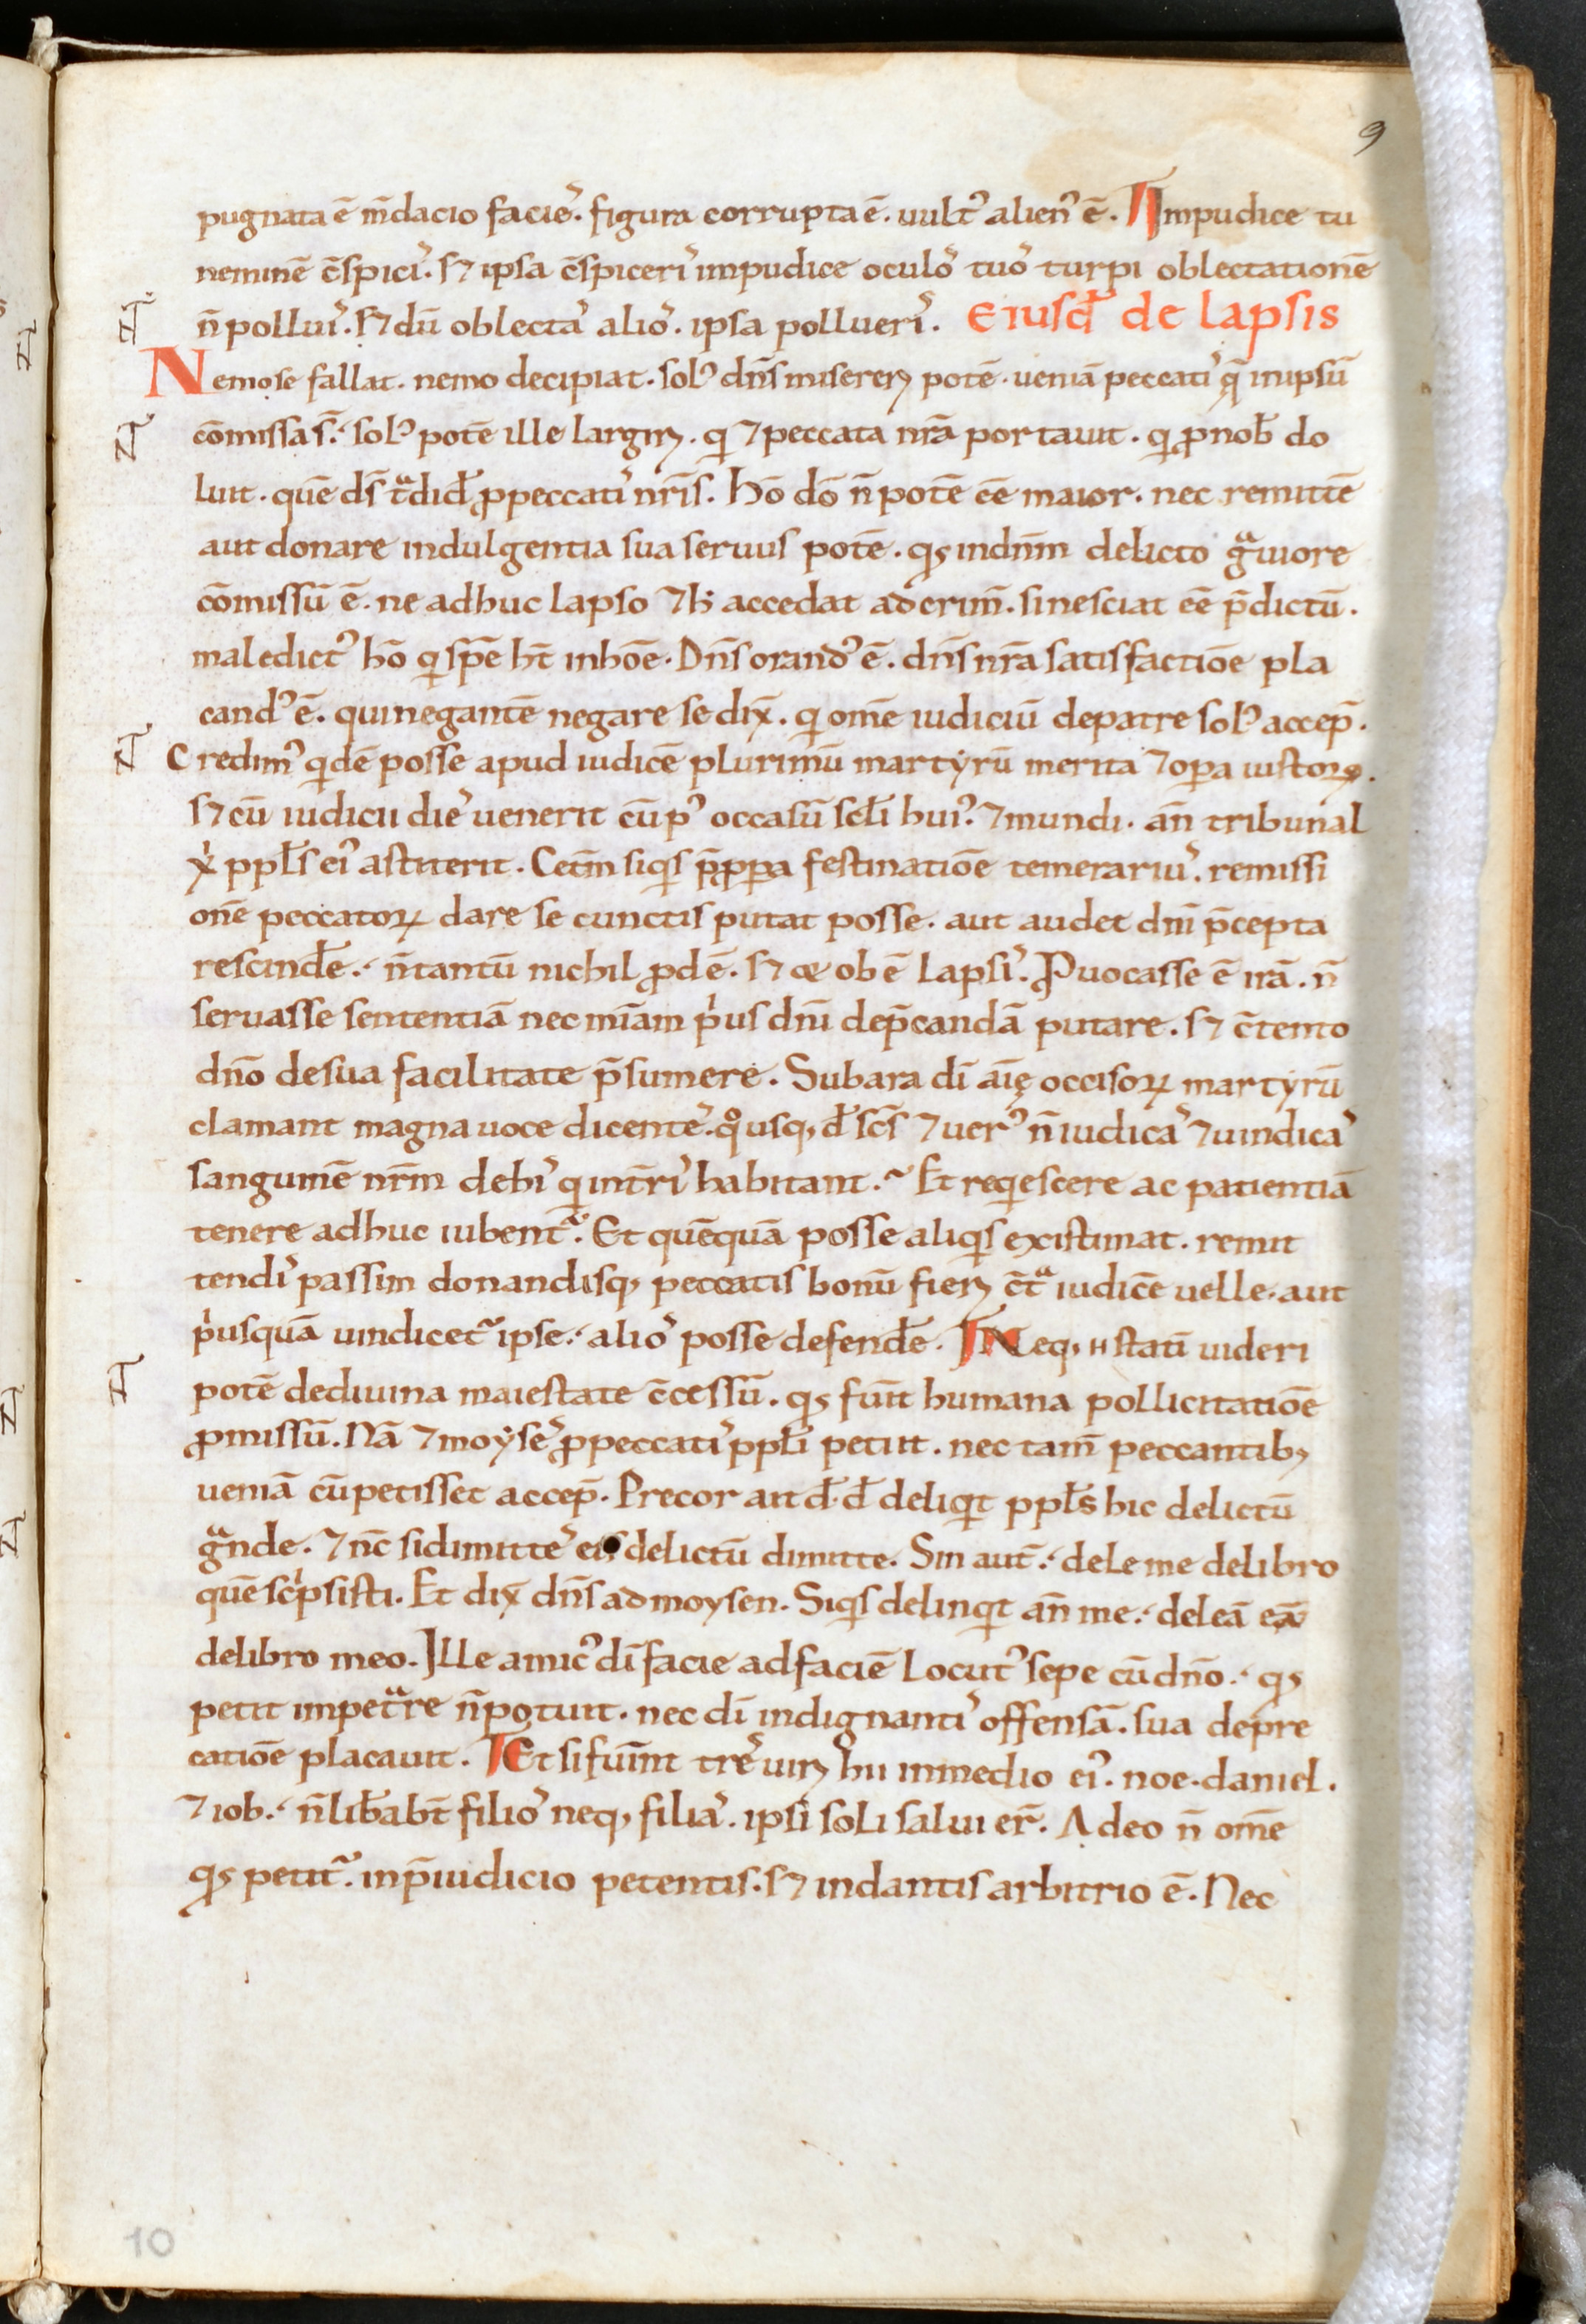 9
pugnata ē m̄dacio facie᾽. figura corrupta ē. uult᾽ alien᾽ ē. Inpudice tu
neminē c̄spici᾽. s⁊ ipsa c̄spiceri᾽ impudice oculo᾽ tuo᾽ turpi oblectationē
n̄ pollui᾽. S⁊ dū oblecta᾽ alio᾽. ipsa pollueri᾽. Eiusd̄ de lapsis
Nemo se fallat. nemo decipiat. sol᾽ dn̄s misereri potē. ueniā peccati᾽ q̄ in ipsū
cōmissa s̄. sol᾽ potē ille largiri. qi ⁊ peccata nr̄a portauit. qi ꝓ nob̄ do
luit. quē ds̄ tͣdid̄ ꝓ peccati᾽ nr̄is. hō dō n̄ potē eē maior. nec remittē
aut donare indulgentia sua seruus potē. qꝫ in dn̄m delicto gͣuiore
cōmissū ē. ne adhuc lapso ⁊ h̄ accedat ad crim̄. si nesciat eē p̄dictū.
maledict᾽ hō qi spē ht̄ in hōe. Dn̄s orand᾽ ē. dn̄s nr̄a satisfactiōe pla
cand᾽ ē. qui negantē negare se dix̄. qi om̄e iudiciū de patre sol᾽ accep̄.
Credim᾽ qidē posse apud iudicē plurimū martyrū merita ⁊ oꝑa iustoꝝ.
s⁊ cū iudicii die᾽ uenerit cū p᾽ occasū scl̄i hui᾽ ⁊ mundi. an̄ tribunal
x̓ ppl̄s ei᾽ astiterit. Cet̄m siqis p̄ꝓꝑa festinatiōe temerariu᾽. remissi
onē peccatoꝝ dare se cunctis putat posse. aut audet dn̄i p̄cepta
rescind̄e. n̄ tantū nichil ꝓd ē. s⁊ ⁊ ob ē lapsi᾽. Ꝓuocasse ē irā. n̄
seruasse sententiā nec mīam pⁱus dn̄i dep̄candā putare. s⁊ c̄tento
dn̄o de sua facilitate p̄sumere. Sub ara dī aīę occisoꝝ martyrū
clamant magna uoce dicente᾽. qͦusqꝫ d̄ sc̄s ⁊ uer᾽ n̄ iudica᾽ ⁊ uindica᾽
sanguinē nr̄m de hi᾽ qi in t̄ri᾽ habitant. Et reqiescere ac patientiā
tenere adhuc iubent᷑. Et quēquā posse aliqis existimat. remit
tendi᾽ passim donandisqꝫ peccatis bonū fieri c̄tͣ iudicē uelle. aut
pⁱusquā uindicet᷑ ipse. alio᾽ posse defend̄e. Neqꝫ statī uideri
potē de diuina maiestate c̄cessū. qꝫ fuīt humana pollicitatiōe
ꝓmissū. Nā ⁊ moyse᾽ ꝓ peccati᾽ ppl̄i petiit. nec tam̄ peccantibꝫ
ueniā cū petisset accep̄. Precor ait d̄. d̄ deliqit ppl̄s hic delictū
gͣnde. ⁊ nc̄ si dimitte᾽ eis delictū dimitte. Sin aut̄. dele me de libro
quē scⁱpsisti. Et dix̄ dn̄s ad moysen. Siqis delinqit an̄ me. deleā eū
de libro meo. Ille amic᾽ dī facie ad faciē locut᾽ sepe cū dn̄o. qꝫ
petit impetͣre n̄ potuit. nec dī indignanti᾽ offensā. sua depre
catiōe placauit. Et si fuīnt tre᾽ uiri hii in medio ei᾽. noe. daniel.
⁊ iob. n̄ lib̄abt̄ filio᾽ neqꝫ filia᾽. ipsi soli salui er̄. Adeo n̄ om̄e
qꝫ petit᷑. in p̄iudicio petentis. s⁊ in dantis arbitrio ē. Nec
10